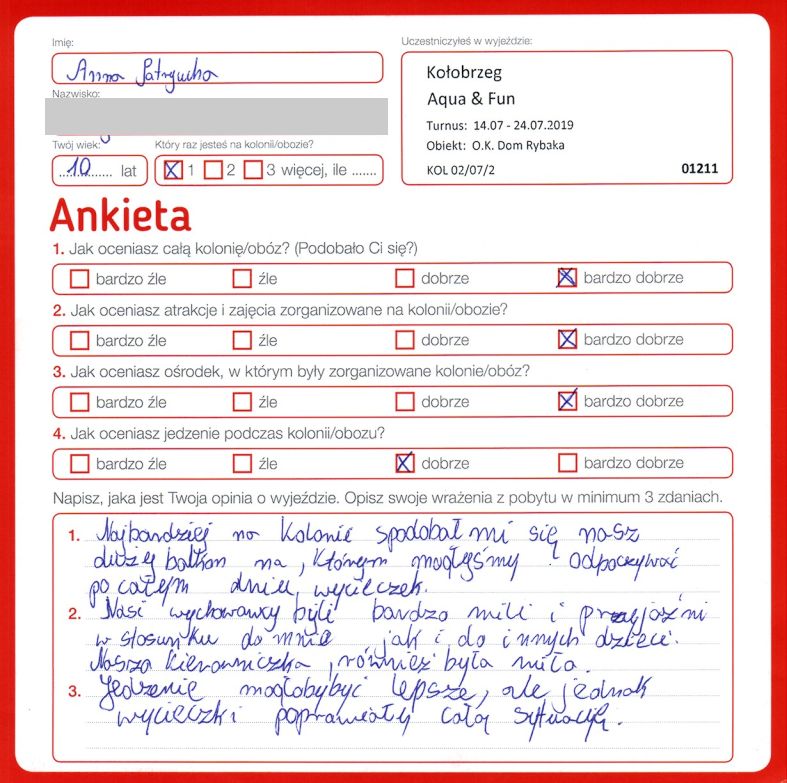 Imię:
Anna Patrycha
Nazwisko:
Twój wiek:
10 lat
Który raz jesteś na kolonii/obozie?
1 2 3 więcej, ile .......
Uczestniczyłeś w wyjeździe:
Kołobrzeg
Aqua & Fun
Turnus: 14.07 - 24.07.2019
Obiekt: O.K. Dom Rybaka
KOL 02/07/2 01211
Ankieta
1. Jak oceniasz całą kolonię/obóz? (Podobało Ci się?)
bardzo źle źle dobrze bardzo dobrze
2. Jak oceniasz atrakcje i zajęcia zorganizowane na kolonii/obozie?
bardzo źle źle dobrze bardzo dobrze
3. Jak oceniasz ośrodek, w którym były zorganizowane kolonie/obóz?
bardzo źle źle dobrze bardzo dobrze
4. Jak oceniasz jedzenie podczas kolonii/obozu?
bardzo źle źle dobrze bardzo dobrze
Napisz, jaka jest Twoja opinia o wyjeździe. Opisz swoje wrażenia z pobytu w minimum 3 zdaniach.
1. Najbardziej na Kolonie spodobał mi się nasz
dużej balkon na, którym mogłyśmy odpoczywać
po całym dniu wycieczek.
2. Nasi wychowawcy byli bardzo mili i przyjaźni
w stosunku do mnie jak i do innych dzieci.
Nasza kierowniczka, również była miła.
3. Jedzenie mogłobybyć lepsze, ale jednak
wycieczki poprawiały całą sytuację.